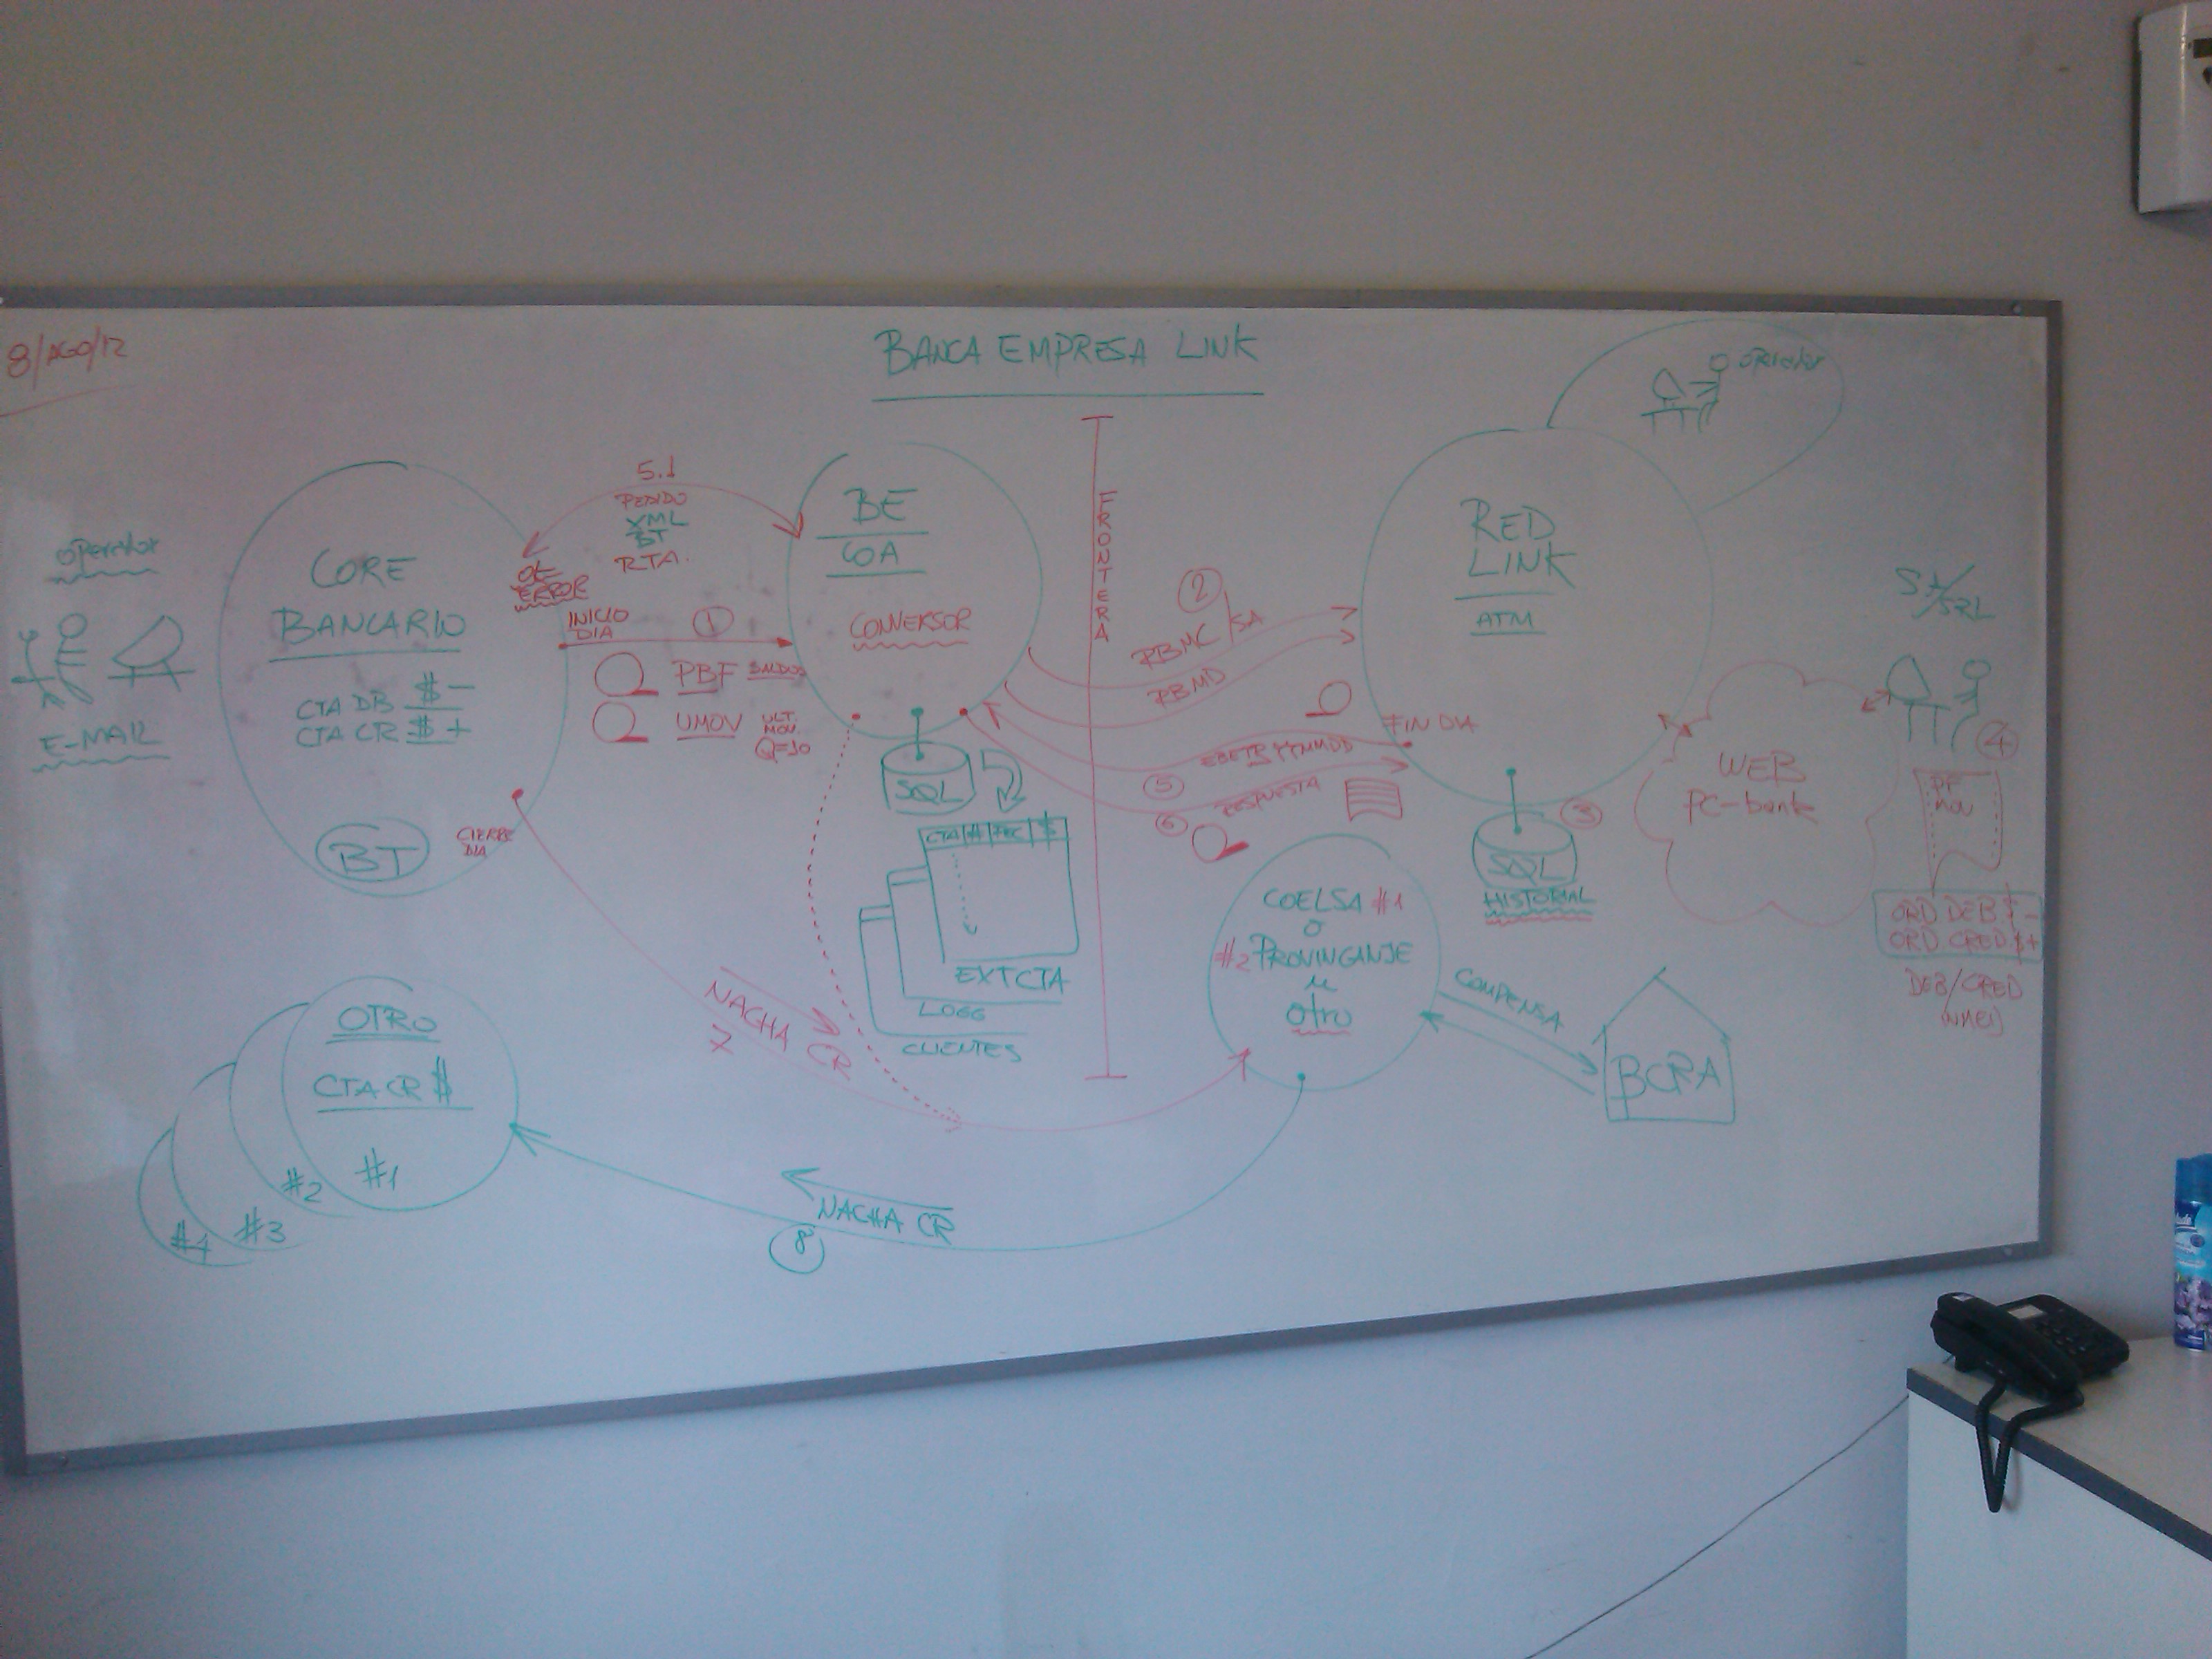 8/AGO/12
BANCA EMPRESA LINK
operador
E-MAIL
CORE
BANCARIO
CTA DB $ -
CTA CR $ +
BT
CIERRE
DIA
5.1
PEDIDO
XML
BT
RTA.
OK
ERROR
INICIO
DIA
1
PBF SALDOS
UMOV ULT.
MOV.
Q=10
BE
COA
CONVERSOR
SQL
CTA # FEC $
EXTCTA
LOGG
CLIENTES
FRONTERA
2
PBMC SA
PBMD
FIN DIA
5
6
RESPUESTA
RED
LINK
ATM
operador
SQL
3
HISTORIAL
WEB
PC-bank
SA/
SRL
4
ORD DEB $ -
ORD CRED $ +
DEB/CRED
COELSA #1
O
#2 PROVINGANJE
u
otro
COMPENSA
BCRA
OTRO
CTA CR $
#1
#2
#3
#4
NACHA CR
7
NACHA CR
8